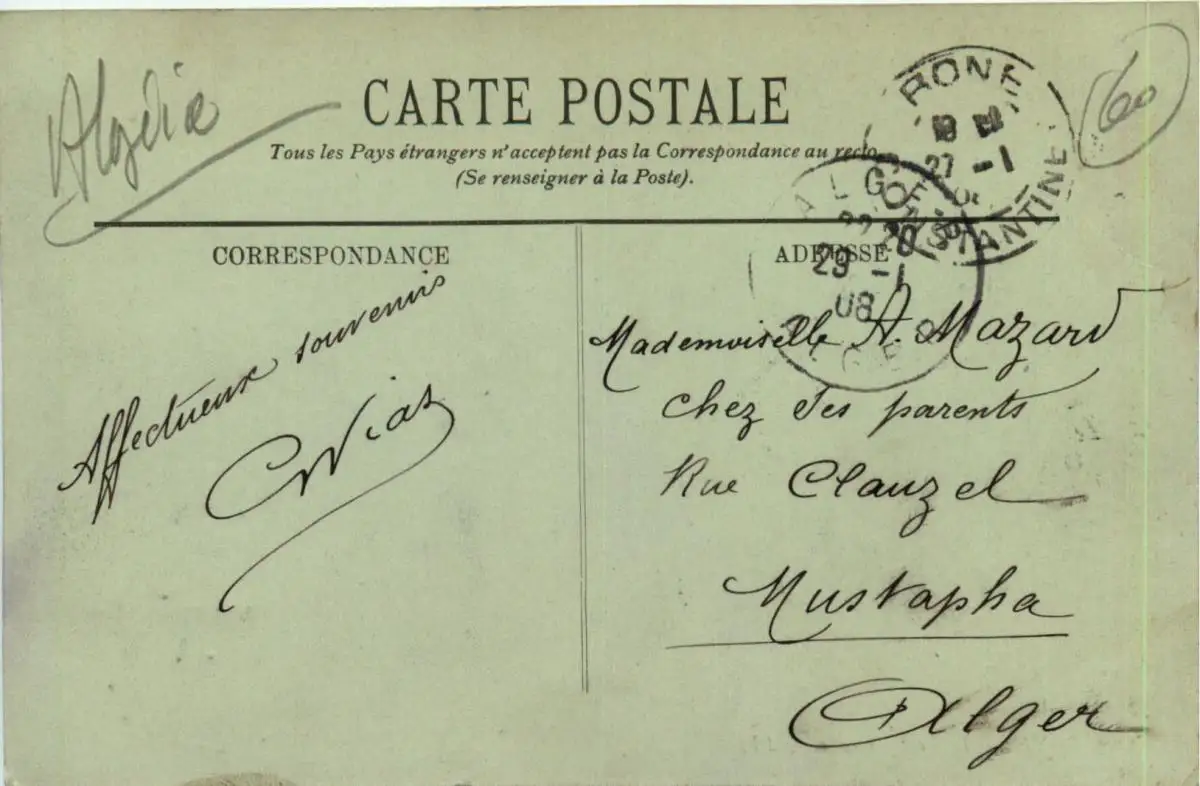 Algéria
60
CARTE POSTALE
Tous les Pays étrangers n'acceptent pas la Correspondance au recto
(Se renseigner à la Poste).
BONE
27 -1
CONSTANTINE
ALGER
29 -1
08
ALGER
CORRESPONDANCE
Affectueux souvenirs
ADRESSE
Mademoiselle A. Mazard
chez ses parents
Rue Clauzel
Mustapha
Alger